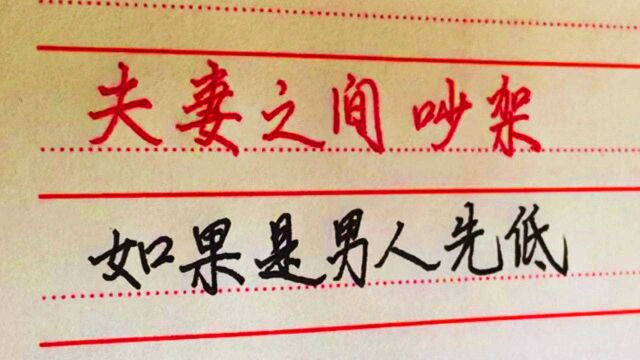 夫妻之间吵架
如果是男人先低